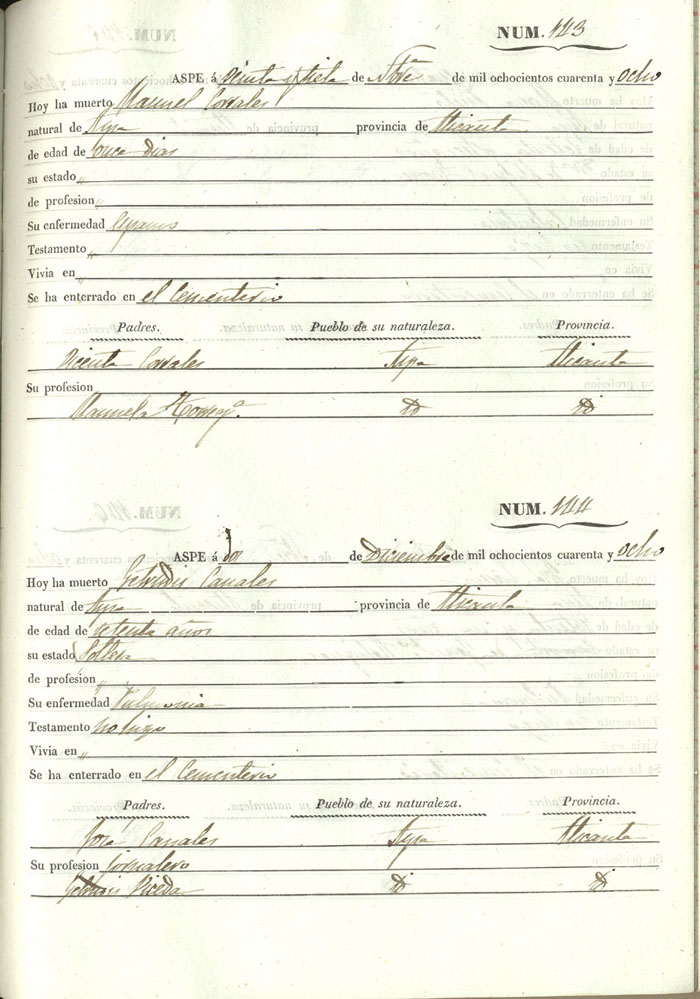 NUM. 143
ASPE á Veinte y siete de Nbre de mil ochocientos cuarenta y ocho
Hoy ha muerto Manuel Corrales
natural de Aspe provincia de Alicante
de edad de once dias
su estado "
de profesion "
Su enfermedad
Testamento "
Vivia en "
Se ha enterrado en el Cementerio
Padres. Pueblo de su naturaleza. Provincia.
Vicente Corrales Aspe Alicante
Su profesion
Manuela id id
NUM. 144
ASPE á dos de Diciembre de mil ochocientos cuarenta y ocho
Hoy ha muerto Getrudis Canales
natural de Aspe provincia de Alicante
de edad de setenta años
su estado Soltera
de profesion "
Su enfermedad Pulmonia
Testamento no hizo
Vivia en "
Se ha enterrado en el Cementerio
Padres. Pueblo de su naturaleza. Provincia.
José Canales Aspe Alicante
Su profesion jornalero
Getrudis id id